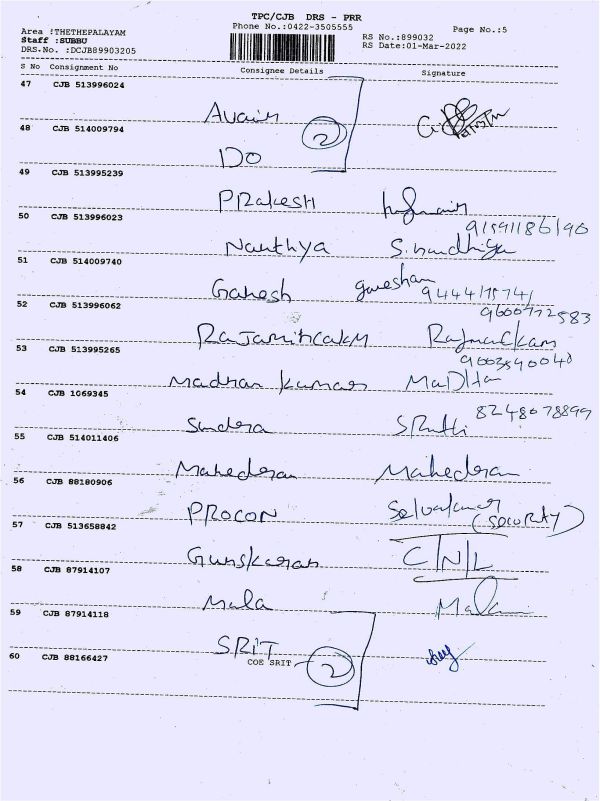 TPC/CJB DRS - PRR
Area :THETHEPALAYAM Phone No.:0422-3505555 Page No.:5
Staff :SUBBU RS No.:899032
DRS.No. :DCJB89903205 RS Date:01-Mar-2022
S No Consignment No Consignee Details Signature
47 CJB 513996024
48 CJB 514009794
2
DO
49 CJB 513995239
PRakesH
50 CJB 513996023
91591186190
Nanthya S.nandhiya
51 CJB 514009740
Gahesh ganesham
52 CJB 513996062
9600772583
53 CJB 513995265
9003590040
Madhan kumar MaDHan
54 CJB 1069345
8248078899
Sundra SRuthi
55 CJB 514011406
Mahederan Mahederan
56 CJB 88180906
PROCON Selvakumar (SECURITY)
57 CJB 513658842
Gunskaran C/N/L
58 CJB 87914107
Mala Mala
59 CJB 87914118
SRIT
COE SRIT 2
60 CJB 88166427